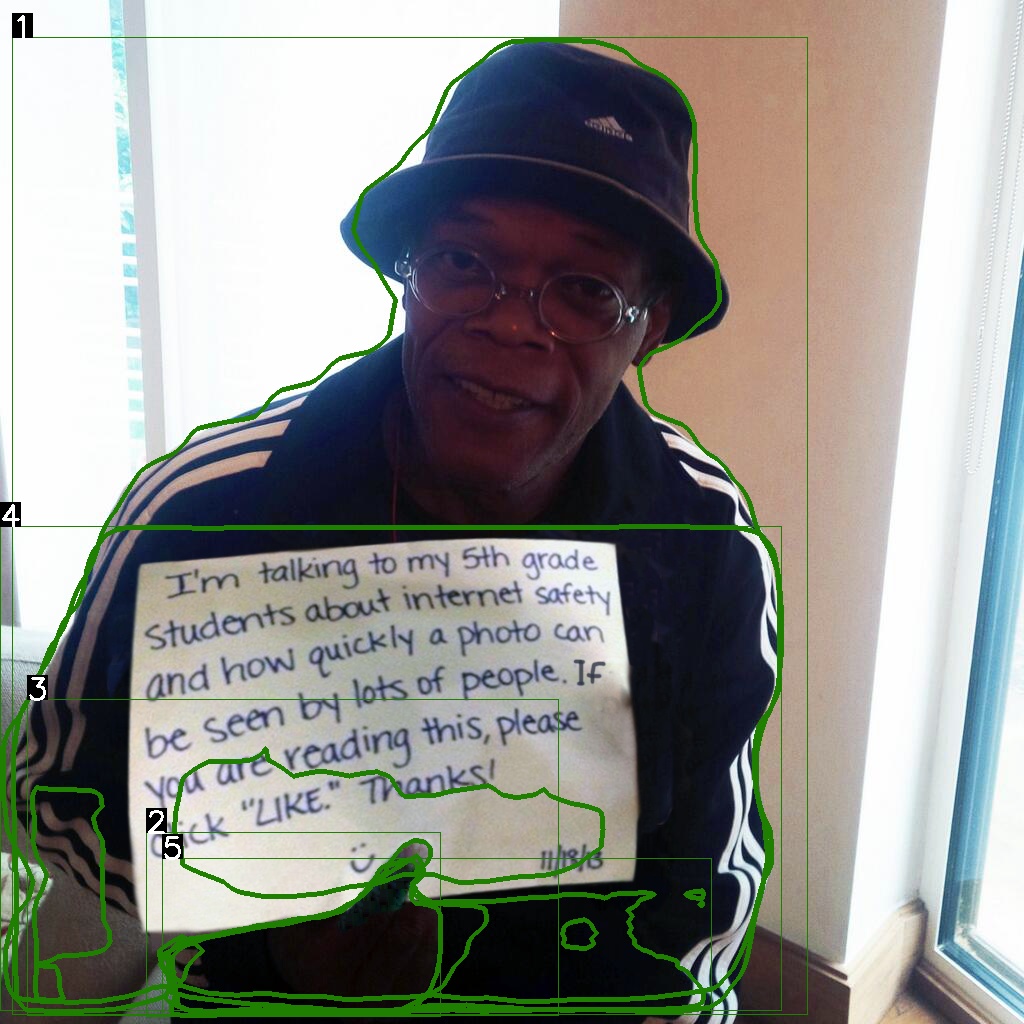 adidas
I'm talking to my 5th grade
students about internet safety
and how quickly a photo can
be seen by lots of people. If
you are reading this, please
click "LIKE." Thanks!
11/18/13
1
4
3
2
5